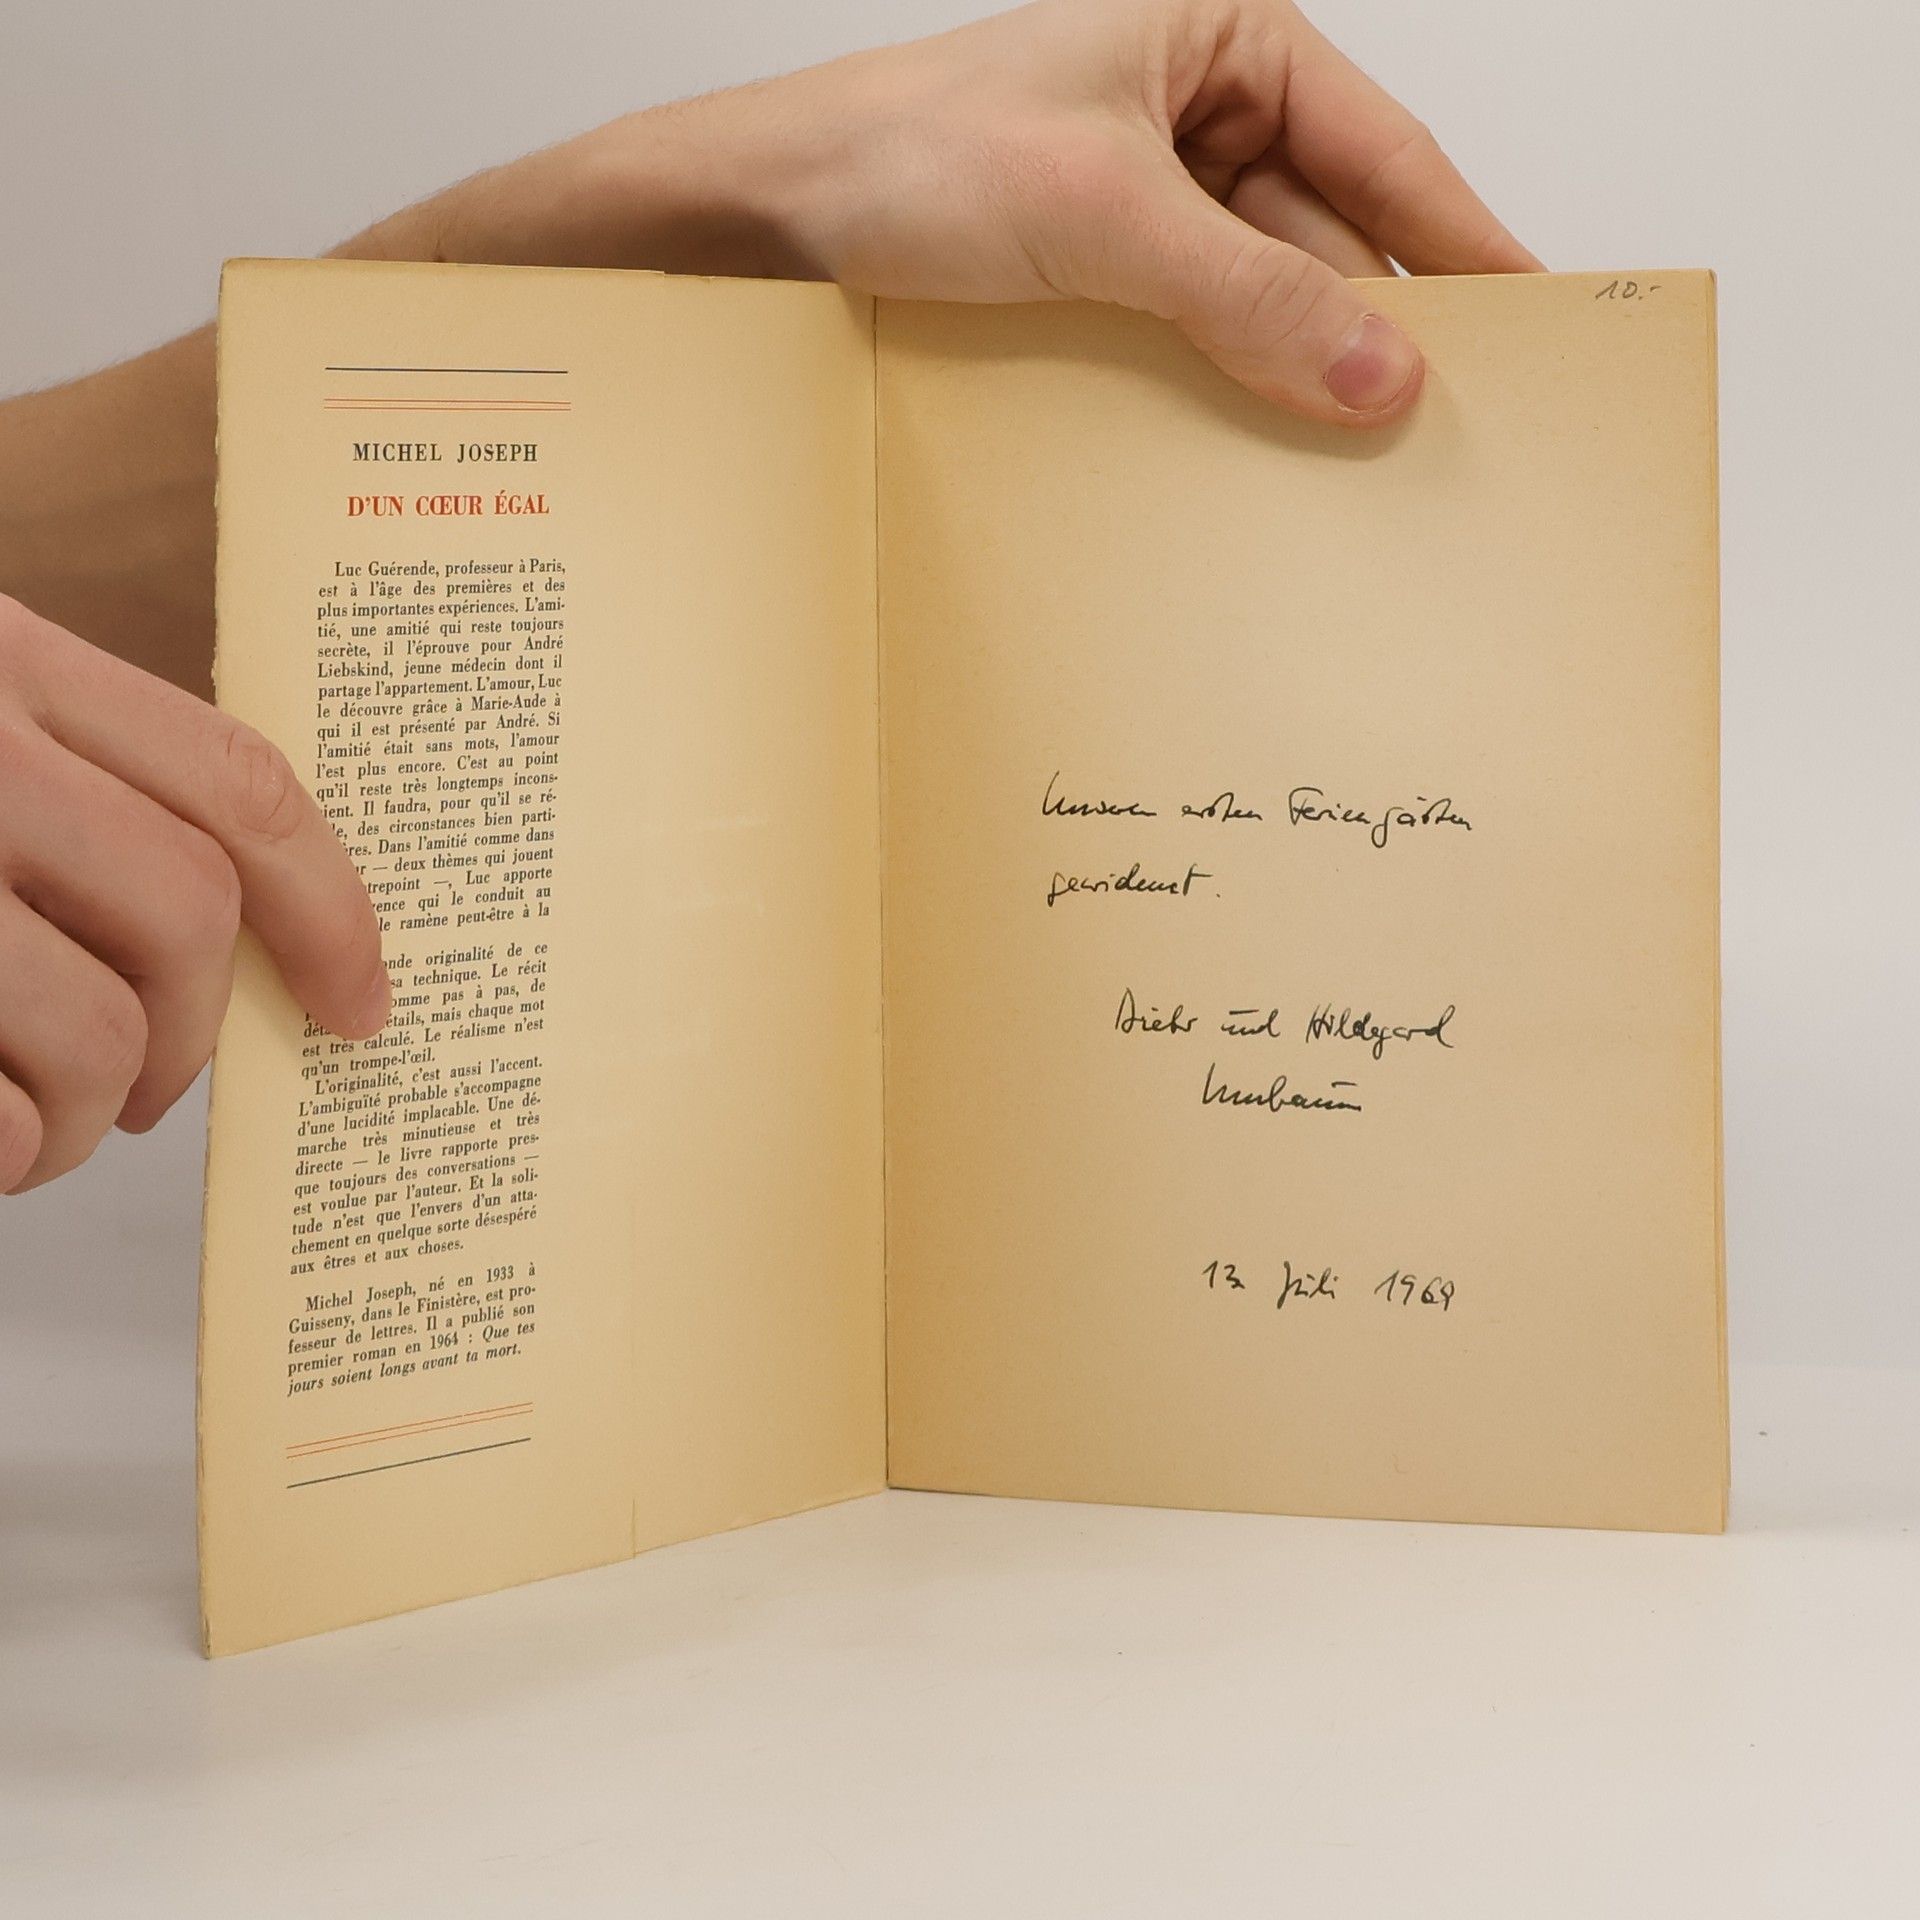 MICHEL JOSEPH
D'UN CŒUR ÉGAL
Luc Guérende, professeur à Paris,
est à l'âge des premières et des
plus importantes expériences. L'ami-
tié, une amitié qui reste toujours
secrète, il l'éprouve pour André
Liebskind, jeune médecin dont il
partage l'appartement. L'amour, Luc
le découvre grâce à Marie-Aude à
qui il est présenté par André. Si
l'amitié était sans mots, l'amour
l'est plus encore. C'est au point
qu'il reste très longtemps incons-
ient. Il faudra, pour qu'il se ré-
le, des circonstances bien parti-
ères. Dans l'amitié comme dans
r — deux thèmes qui jouent
trepoint —, Luc apporte
ence qui le conduit au
le ramène peut-être à la
nde originalité de ce
sa technique. Le récit
omme pas à pas, de
détails, mais chaque mot
est très calculé. Le réalisme n'est
qu'un trompe-l'œil.
L'originalité, c'est aussi l'accent.
L'ambiguïté probable s'accompagne
d'une lucidité implacable. Une dé-
marche très minutieuse et très
directe — le livre rapporte pres-
que toujours des conversations —
est voulue par l'auteur. Et la soli-
tude n'est que l'envers d'un atta-
chement en quelque sorte désespéré
aux êtres et aux choses.
Michel Joseph, né en 1933 à
Guisseny, dans le Finistère, est pro-
fesseur de lettres. Il a publié son
premier roman en 1964 : Que tes
jours soient longs avant ta mort.
10.-
Unseren ersten Feriengästen
gewidmet.
und Hildegard
Juli 1969